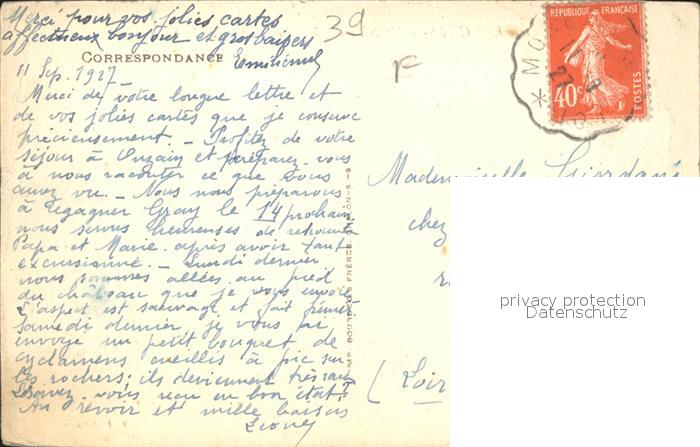 Merci pour vos jolies cartes
affectueux bonjour et gros baisers
39
CORRESPONDANCE
F
11 Sep. 1927
Merci de votre longue lettre et
de vos jolies cartes que je conserve
précieusement - Profitez de votre
séjour à Onzain et préparez-vous
à nous raconter ce que vous
aurez vu. - Nous nous préparons
à regagner Gray le 14 prochain
nous serons heureuses de retrouver
Papa et Marie après avoir tant
excursionné - Lundi dernier
nous sommes allées au pied
du château que je vous envoie
L'aspect est sauvage et fait frémir
samedi dernier je vous ai
envoyé un petit bouquet de
cyclamens cueillis à pic sur
les rochers; ils deviennent très rares
L'avez-vous reçu en bon état?
Au revoir et mille baisers
RÉPUBLIQUE FRANÇAISE
40c
POSTES
Mademoiselle Giordani
chez
(Loir
privacy protection
Datenschutz